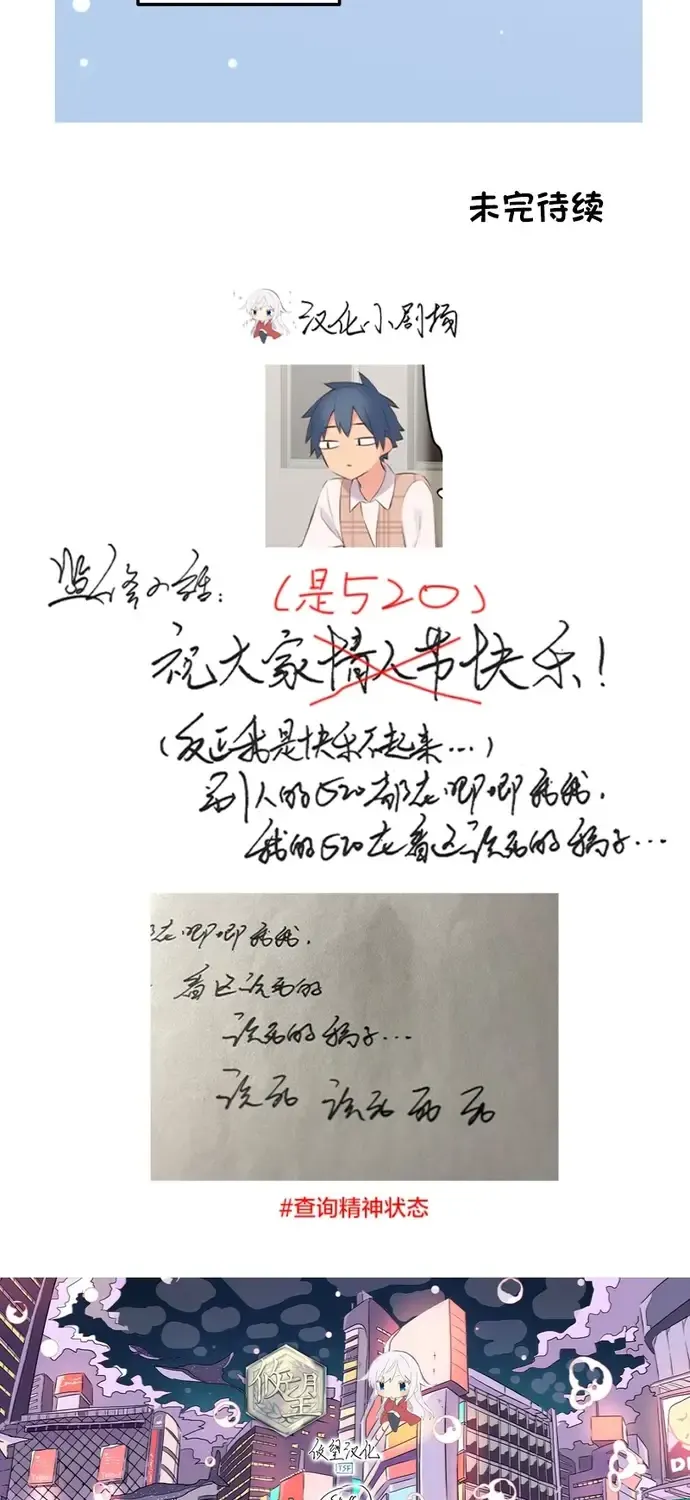 未完待续
汉化小剧场
监修的话：
（是520）
祝大家情人节快乐！
（反正我是快乐不起来...）
别人的520都在唧唧我我，
我的520在看这该死的稿子...
在唧唧我我，
看这该死的
该死的稿子...
该死 该死 死 死
#查询精神状态
悠望
悠望汉化
TSF